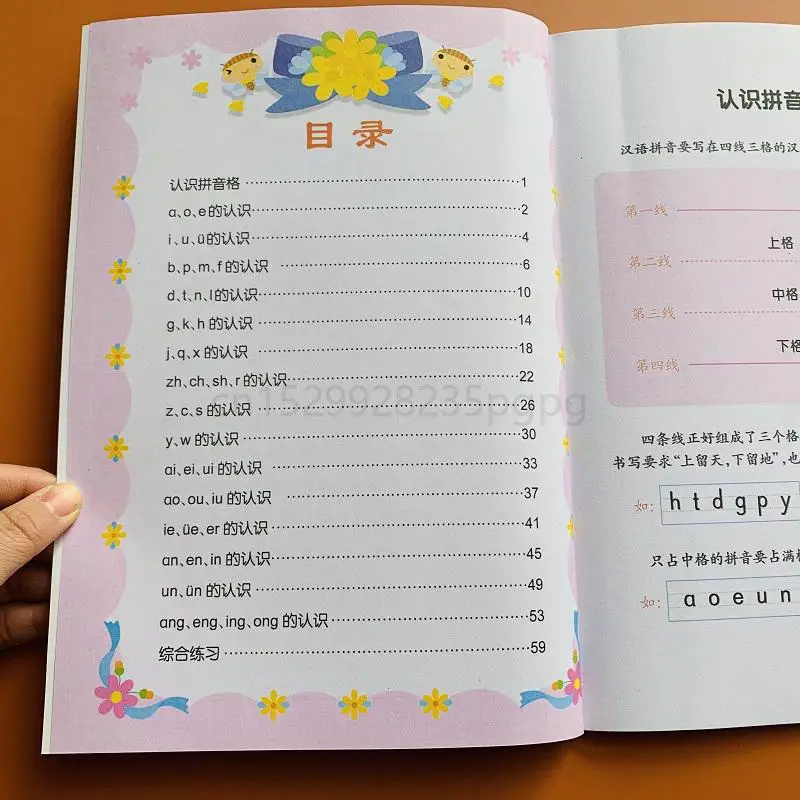 目录
认识拼音格 1
a、o、e的认识 2
i、u、ü的认识 4
b、p、m、f 的认识 6
d、t、n、l的认识 10
g、k、h 的认识 14
j、q、x 的认识 18
zh、ch、sh、r 的认识 22
z、c、s 的认识 26
y、w 的认识 30
ai、ei、ui 的认识 33
ao、ou、iu 的认识 37
ie、üe、er 的认识 41
an、en、in 的认识 45
un、ün 的认识 49
ang、eng、ing、ong 的认识 53
综合练习 59
cn1529928235pgpg
认识拼音
汉语拼音要写在四线三格的汉
第一线
上格
第二线
中格
第三线
下格
第四线
四条线正好组成了三个格
书写要求“上留天,下留地”,也
如: h t d g p y
只占中格的拼音要占满格
如: a o e u n